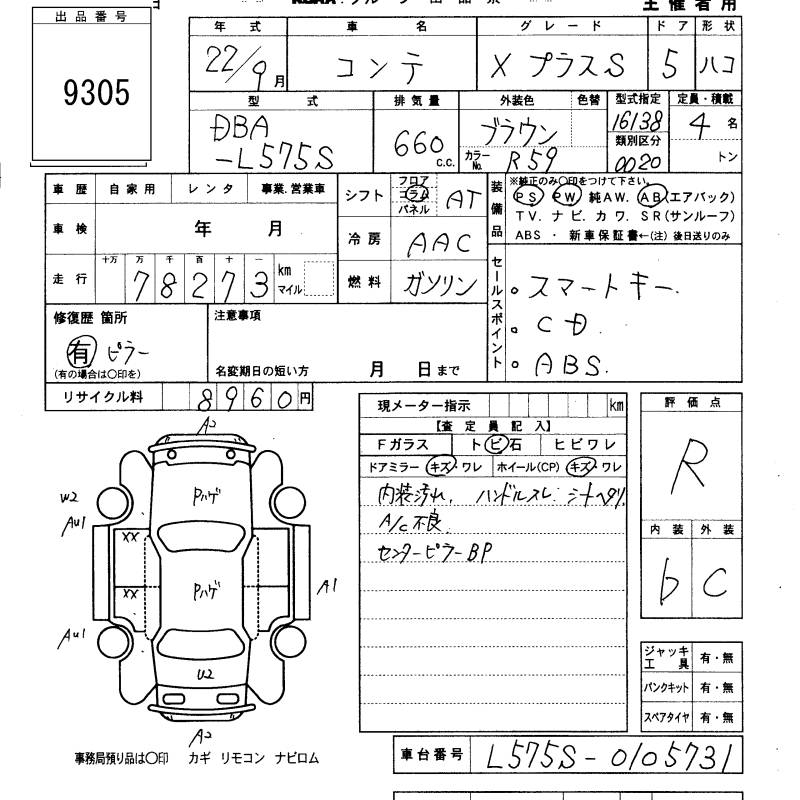 主催者用
出品番号
9305
年式 車名 グレード ドア 形状
22/9月 コンテ X プラスS 5 ハコ
型式 排気量 外装色 色替 型式指定 定員・積載
DBA-L575S 660 c.c. ブラウン 16138 4名
カラーNo. R59 類別区分 0020 トン
車歴 自家用 レンタ 事業.営業車
シフト フロア コラム パネル AT
装備品 ※純正のみ〇印をつけて下さい。
PS PW 純AW. AB(エアバック)
TV. ナビ. カワ. SR(サンルーフ)
ABS ・ 新車保証書←(注) 後日送りのみ
車検 年 月
冷房 AAC
走行 十万 万 千 百 十 一
78273 km マイル
燃料 ガソリン
セールスポイント
。スマートキー.
。CD.
。ABS.
修復歴 箇所
有 ピラー
(有の場合は〇印を)
注意事項
名変期日の短い方 月 日まで
リサイクル料 8960円
現メーター指示 km
【査定員記入】
Fガラス ト ビ 石 ヒビワレ
ドアミラー キズ・ワレ ホイール(CP) キズ・ワレ
内装汚れ, ハンドルスレ, シートヘタリ,
A/c不良
センターピラーBP
評価点
R
内装 外装
b C
A2
Pハゲ
W2
AU1
XX
Pハゲ
A1
XX
AU1
U2
A2
ジャッキ工具 有・無
パンクキット 有・無
スペアタイヤ 有・無
事務局預り品は〇印 カギ リモコン ナビロム
車台番号 L575S-0105731